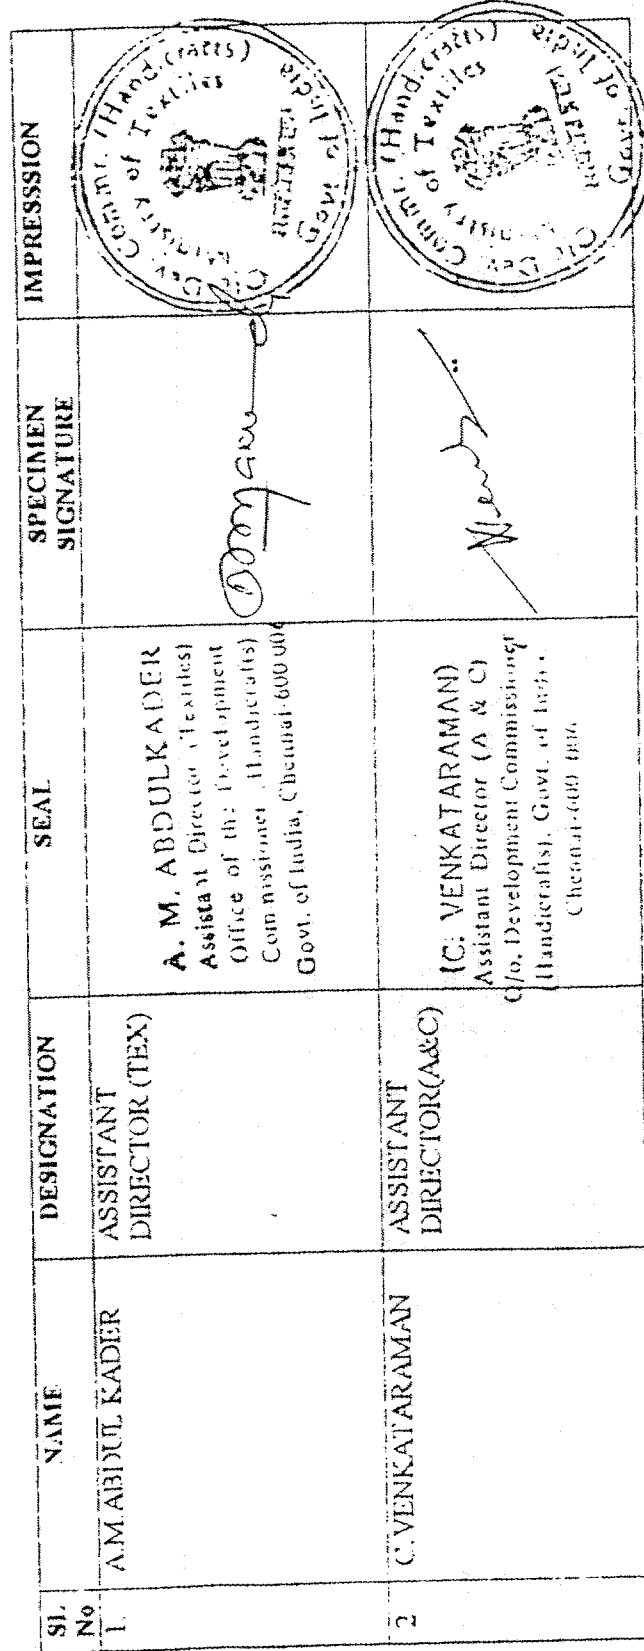 SL. No
NAME
DESIGNATION
SEAL
SPECIMEN
SIGNATURE
IMPRESSSION
1.
A.M.ABDUL KADER
ASSISTANT
DIRECTOR (TEX)
A. M. ABDULKADER
Assistant Director (Textiles)
Office of the Development
Commissioner (Handicrafts)
Govt. of India, Chennai-600 006
O/o Dev. Commr. (Handicrafts)
Ministry of Textiles
Govt of India
2
C.VENKATARAMAN
ASSISTANT
DIRECTOR(A&C)
(C. VENKATARAMAN)
Assistant Director (A & C)
O/o. Development Commissioner
(Handicrafts), Govt. of India
Chennai-600 006
O/o Dev. Commr. (Handicrafts)
Ministry of Textiles
Govt of India